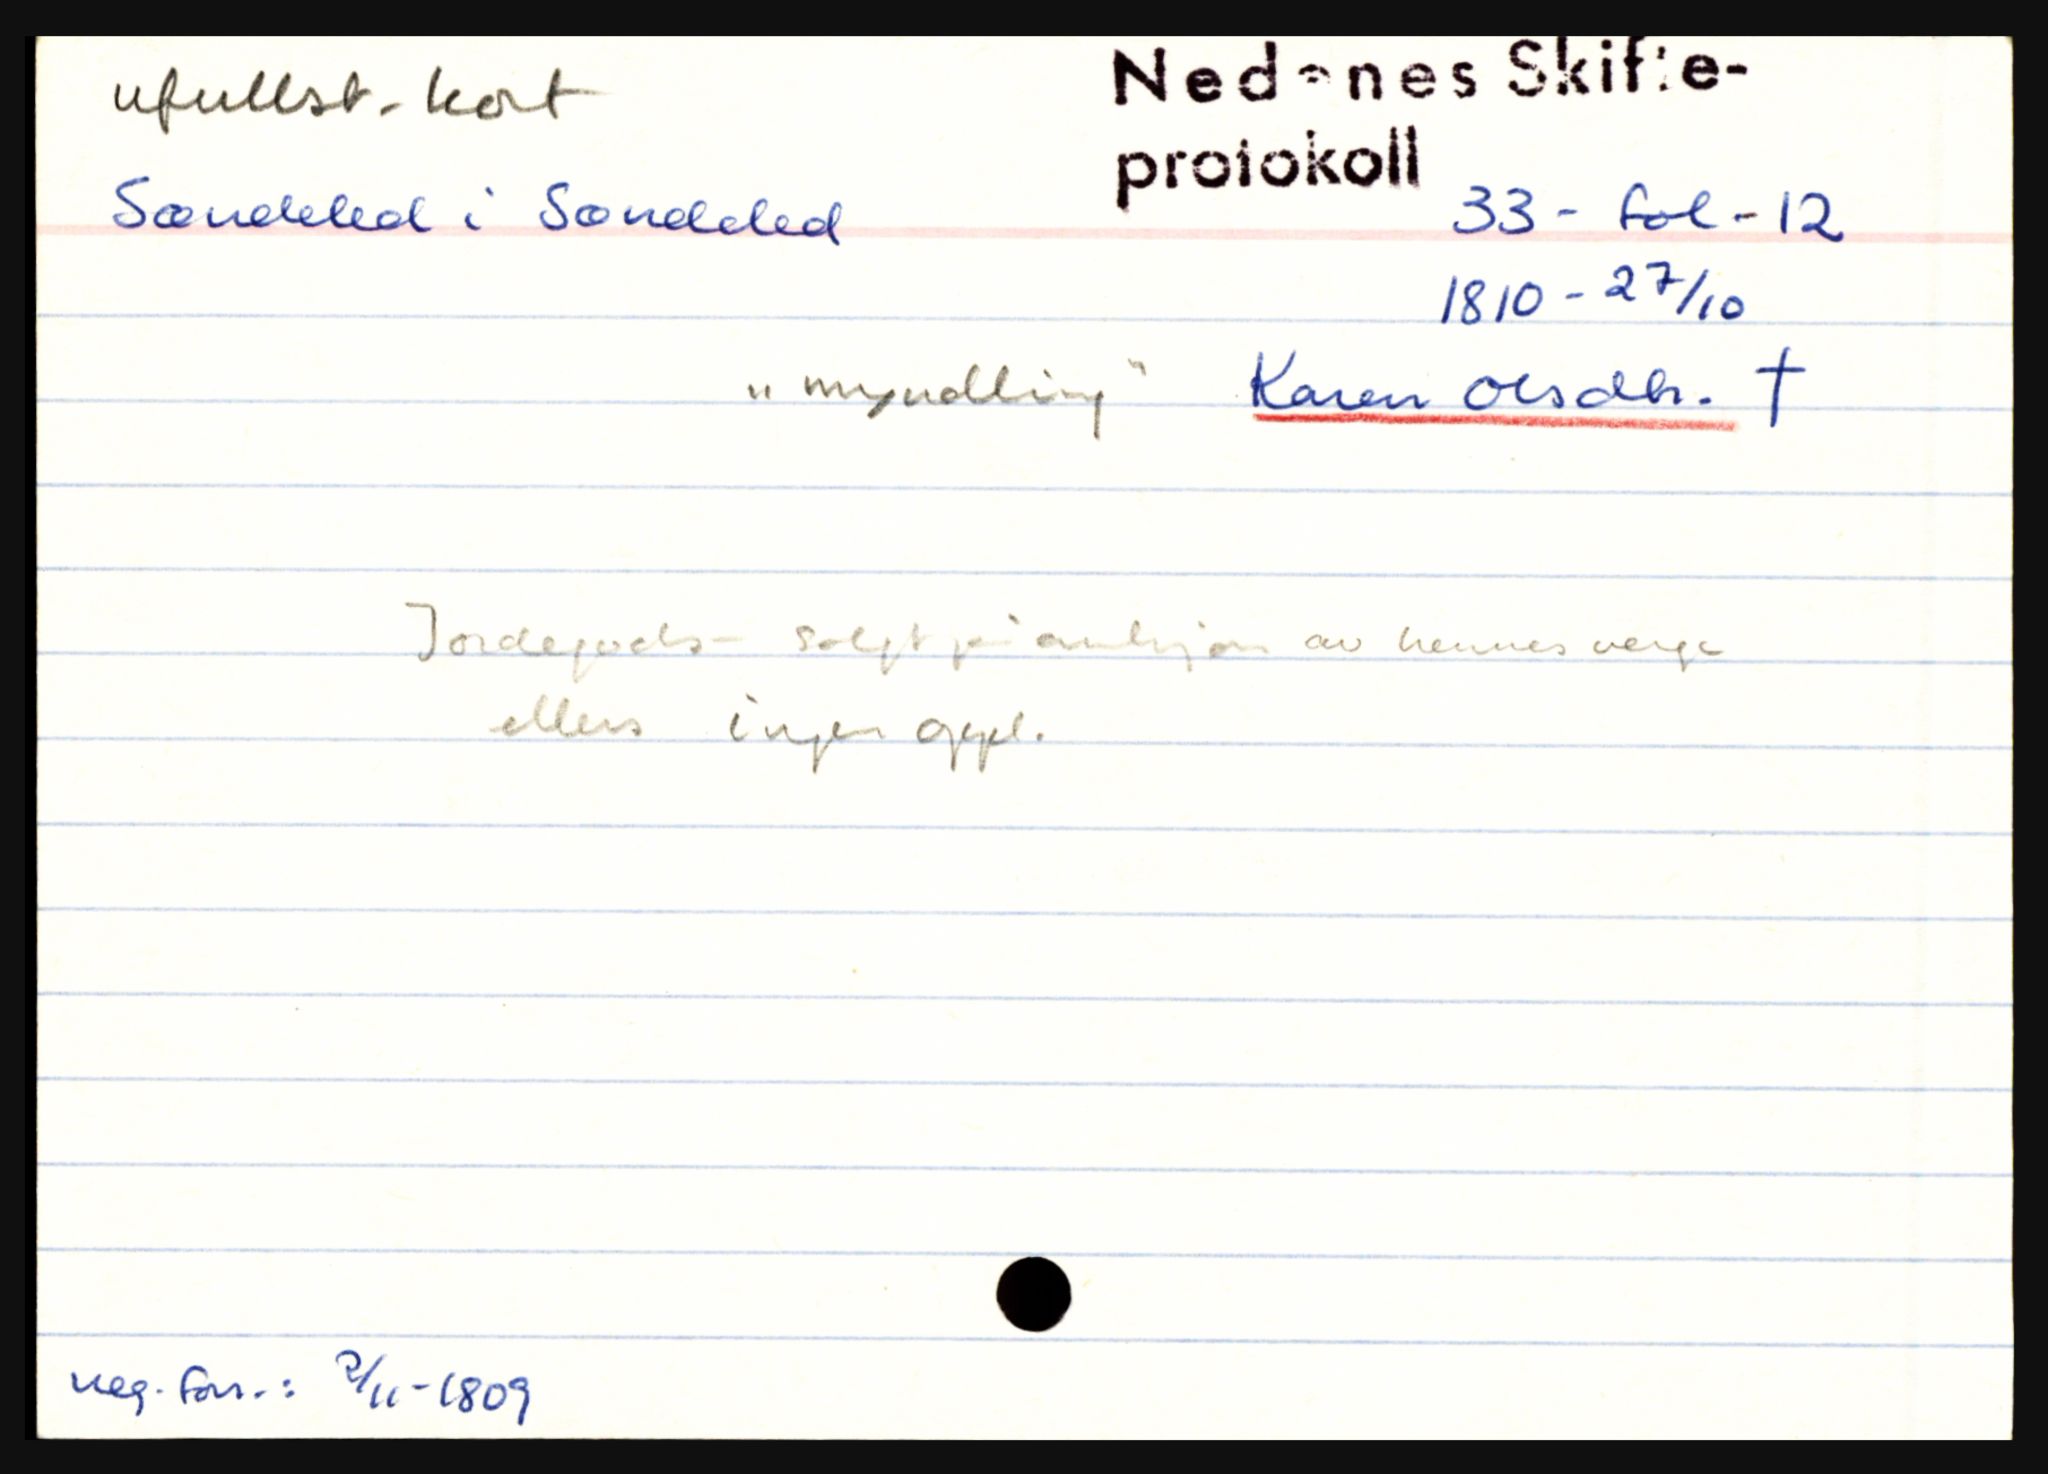 ufullst. kort
Nedenes Skifte-
protokoll
Søndeled i Søndeled
33 - fol - 12
1810 - 27/10
"myndling" Karen Olsdtr. †
Jordegods - solgt på av hennes verge
ellers ingen oppl.
reg. forr.: 2/11 - 1809